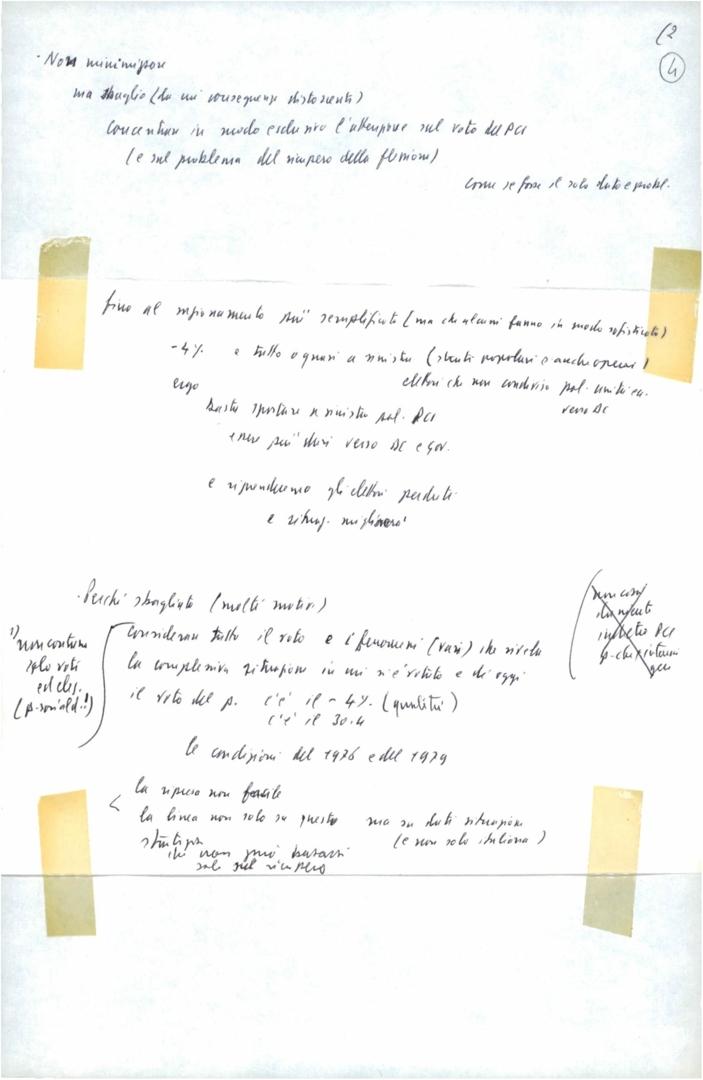 (2
4
· Non minimizzare
ma sbaglio (da cui conseguenze distorcenti)
concentrare in modo esclusivo l'attenzione sul voto del PCI
(e sul problema del recupero della flessione)
come se fosse il solo dato e probl.
fino al ragionamento più semplificato (ma che alcuni fanno in modo sofisticato)
-4% e tutto o quasi a sinistra (strati popolari e anche operai)
ergo elettori che non condiviso pol. unitaria
verso DC
basta spostare a sinistra pol. PCI
essere più duri verso DC e Gov.
e riprenderemo gli elettori perduti
e situaz. migliorerà
· Perché sbagliato (molti motivi)
1) non contano
solo voti
ed elez.
(p. sociald.!)
considerare tutto il voto e i fenomeni (vari) che rivela
la complessiva situazione in cui si è votato e di oggi
il voto del p. c'è il -4% (qualità)
c'è il 30.4
non così
dirigenti
p. che
le condizioni del 1976 e del 1979
la ripresa non facile
la linea non solo su questo ma su dati situazione
(e non solo italiana)
strategia
che non può basarsi
solo sul recupero